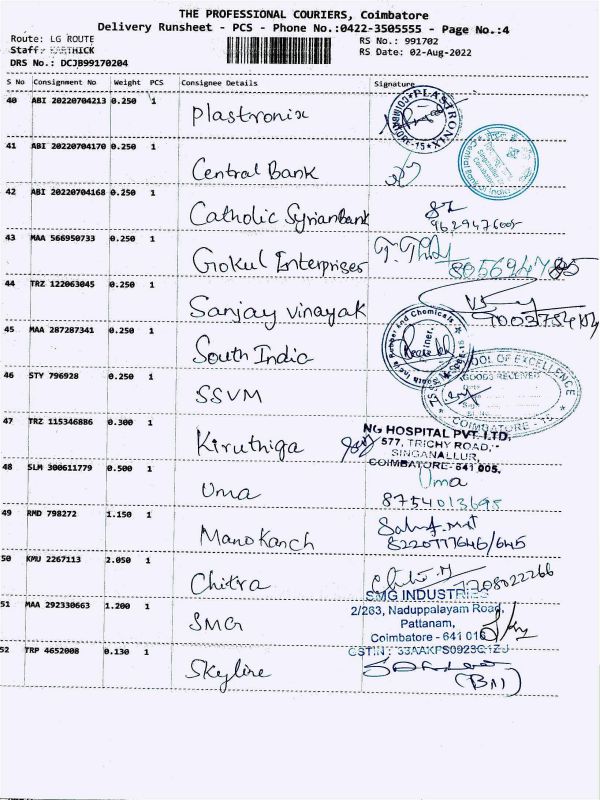 THE PROFESSIONAL COURIERS, Coimbatore
Delivery Runsheet - PCS - Phone No.:0422-3505555 - Page No.:4
Route: LG ROUTE
Staff: KARTHICK
DRS No.: DCJB99170204
RS No.: 991702
RS Date: 02-Aug-2022
S No Consignment No Weight PCS Consignee Details Signature
40 ABI 20220704213 0.250 1 Plastronix
PLASTRONIX COIMBATORE-15
41 ABI 20220704170 0.250 1 Central Bank
42 ABI 20220704168 0.250 1 Catholic Syrian Bank
9629476005
43 MAA 566950733 0.250 1 Gokul Enterprises
8056947885
44 TRZ 122063045 0.250 1 Sanjay vinayak
45 MAA 287287341 0.250 1 South Indic
South India Rubber And Chemicals
46 STY 796928 0.250 1 SSVM
SCHOOL OF EXCELLENCE
GOODS RECEIVED
COIMBATORE
47 TRZ 115346886 0.300 1 Kiruthiga
NG HOSPITAL PVT. LTD.
577, TRICHY ROAD,
SINGANALLUR,
COIMBATORE- 641 005.
48 SLM 300611779 0.500 1 Uma Uma
8754013695
49 RMD 798272 1.150 1 Manokanch
8220717646/645
50 KMU 2267113 2.050 1 Chitra
7708022266
51 MAA 292330663 1.200 1 SMG
SMG INDUSTRIES
2/263, Naduppalayam Road,
Pattanam,
Coimbatore - 641 016
GSTIN: 33AAKFS0923G1ZJ
52 TRP 4652008 0.130 1 Skyline